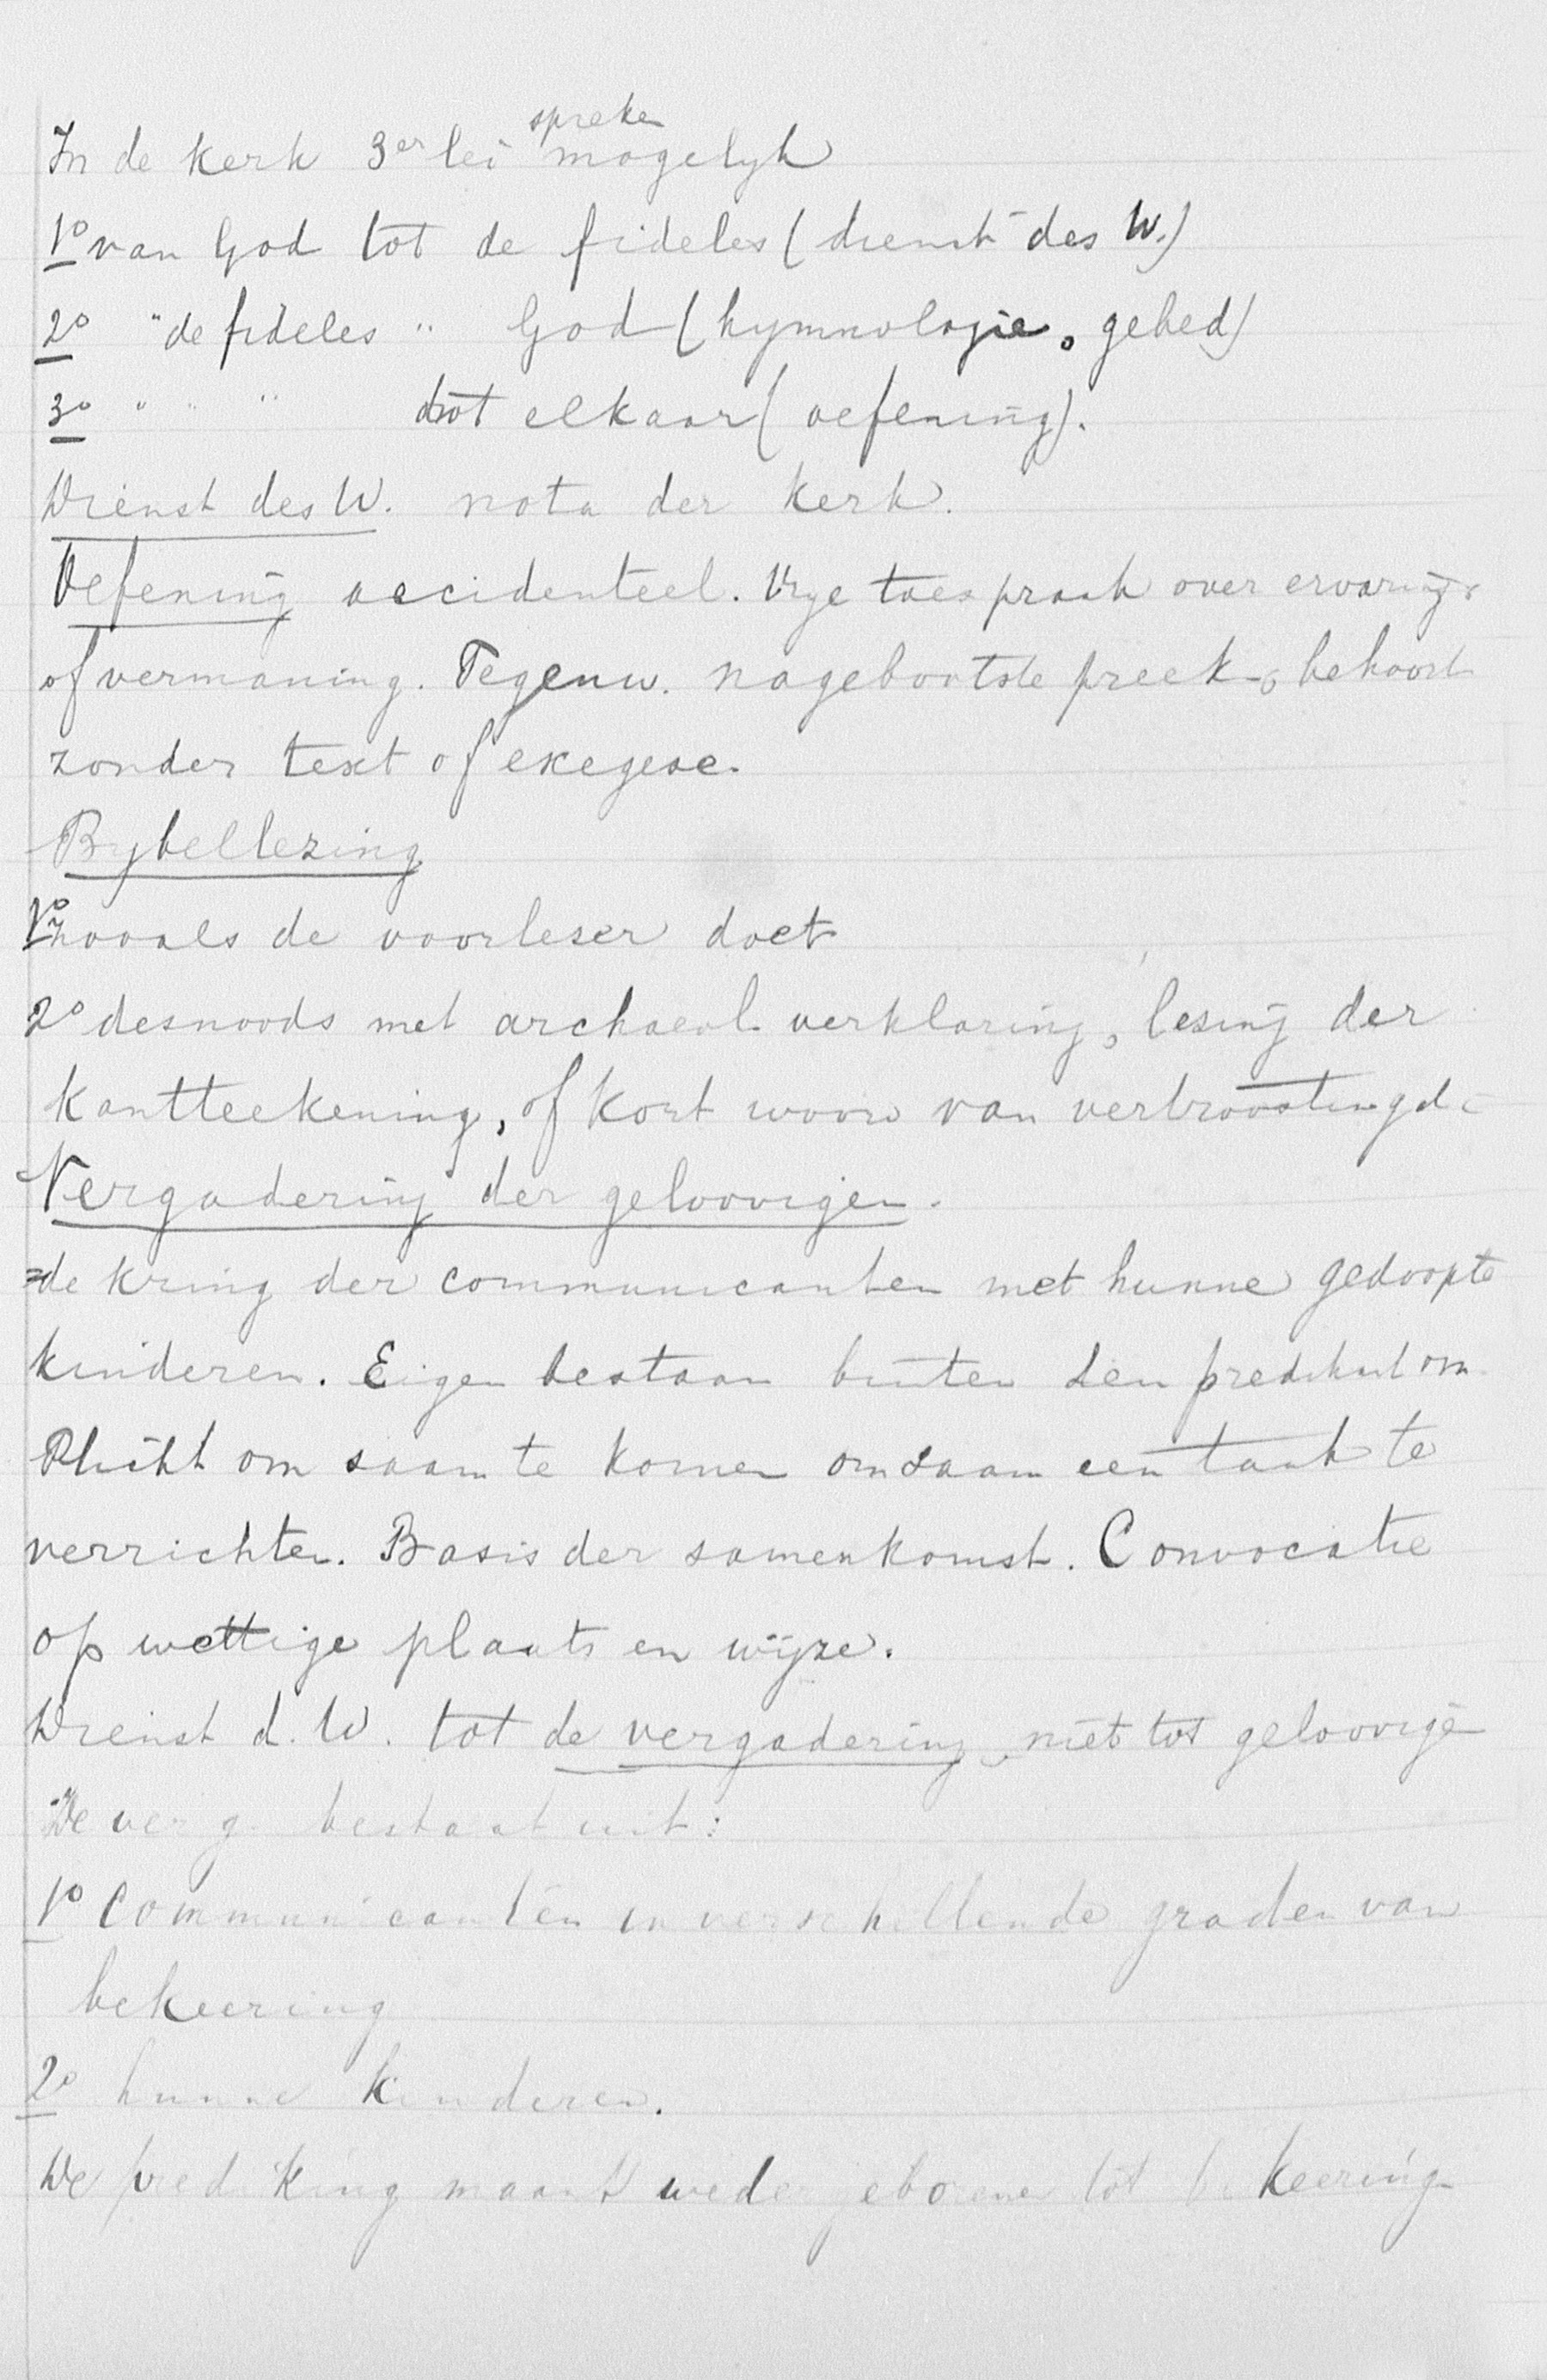 In de kerk 3er lei spreke mogelyk
1o van God tot de fideles (dienst des W.)
2o " de fideles " God (hymnologie, gebed)
3o " " " tot elkaar (oefening).
Dienst des W. nota der kerk.
Oefening accidenteel. Vrye toespraak over ervaring
of vermaning. Tegenw. nagebootste preek, behoort
zonder text of exegese.
Bybellezing
1o zooals de voorleser doet
2o desnoods met archaeol. verklaring, lesing der
kantteekening, of kort woord van vertroosting
Vergadering der geloovigen.
= de kring der communicanten met hunne gedoopte
kinderen. Eigen bestaan buiten den predikant om.
Plicht om saam te komen om saam een taak te
verrichten. Basis der samenkomst. Convocatie
op wettige plaats en wijze.
Dienst d. W. tot de vergadering, niet tot geloovigen
De verg. bestaat uit:
1o Communicanten in verschillende graden van
bekeering
2o hunne kinderen.
De prediking maant wedergeborene tot bekeering